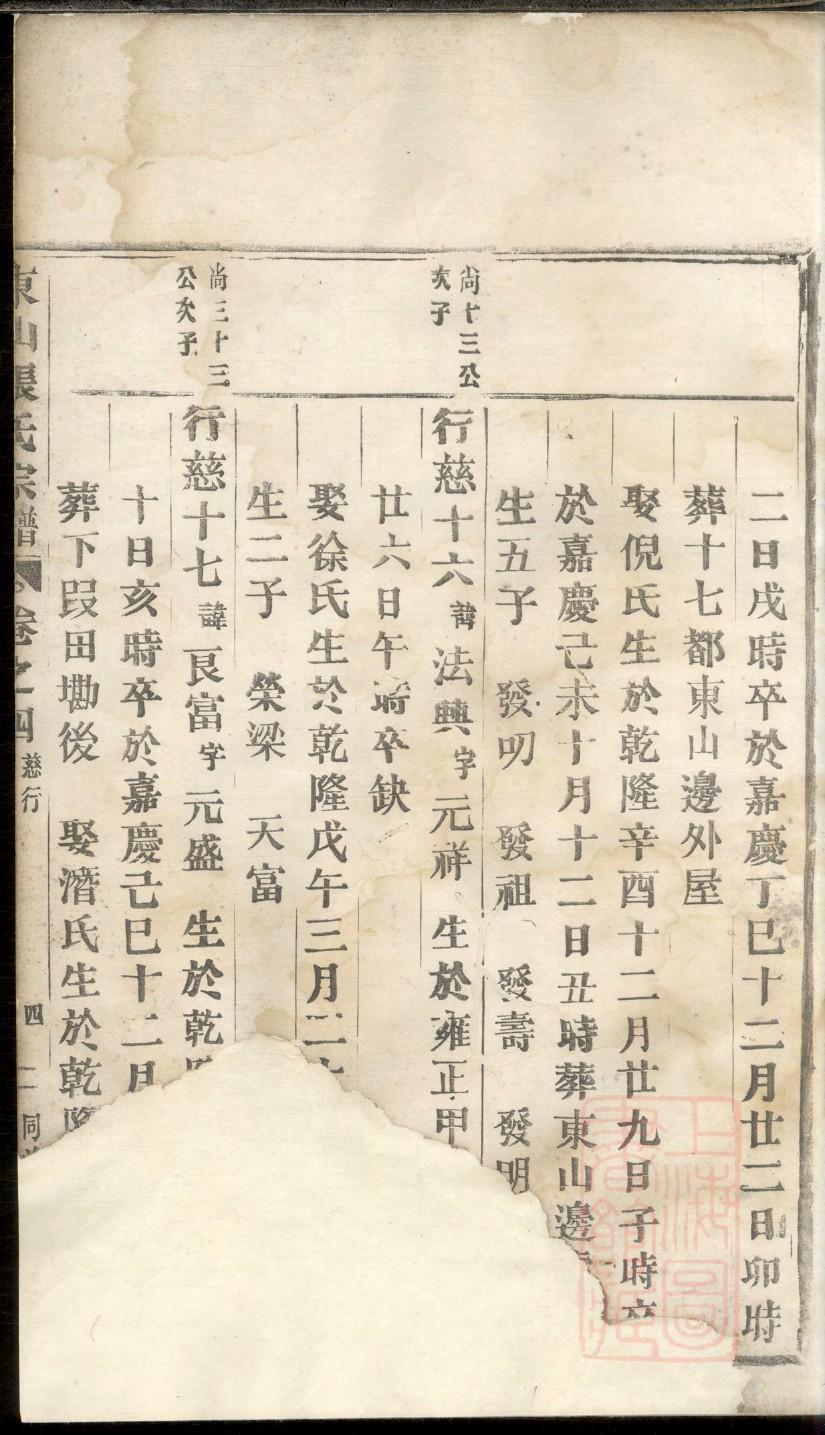 二日戌時卒於嘉慶丁巳十二月廿二日卯時
葬十七都東山邊外屋
娶倪氏生於乾隆辛酉十二月廿九日子時卒
於嘉慶己未十月十二日丑時葬東山邊
生五子　發叨　發祖　發壽　發明
尚十三公
次子
行慈十六諱法興字元祥　生於雍正甲
廿六日午時卒缺
娶徐氏生於乾隆戊午三月二十
生二子　榮梁　天富
尚三十三
公次子
行慈十七諱良富字元盛　生於乾
十日亥時卒於嘉慶己巳十二月
葬下叚田墈後　娶潘氏生於乾隆
東山張氏宗譜　卷之四　慈行　四　二　同
上海圖書館藏